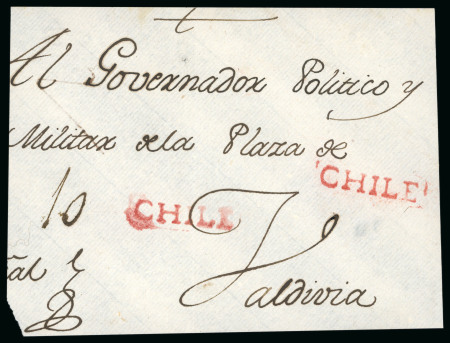 Al Governador Politico y
Militar de la Plaza de
CHILE
10 CHILE
Valdivia